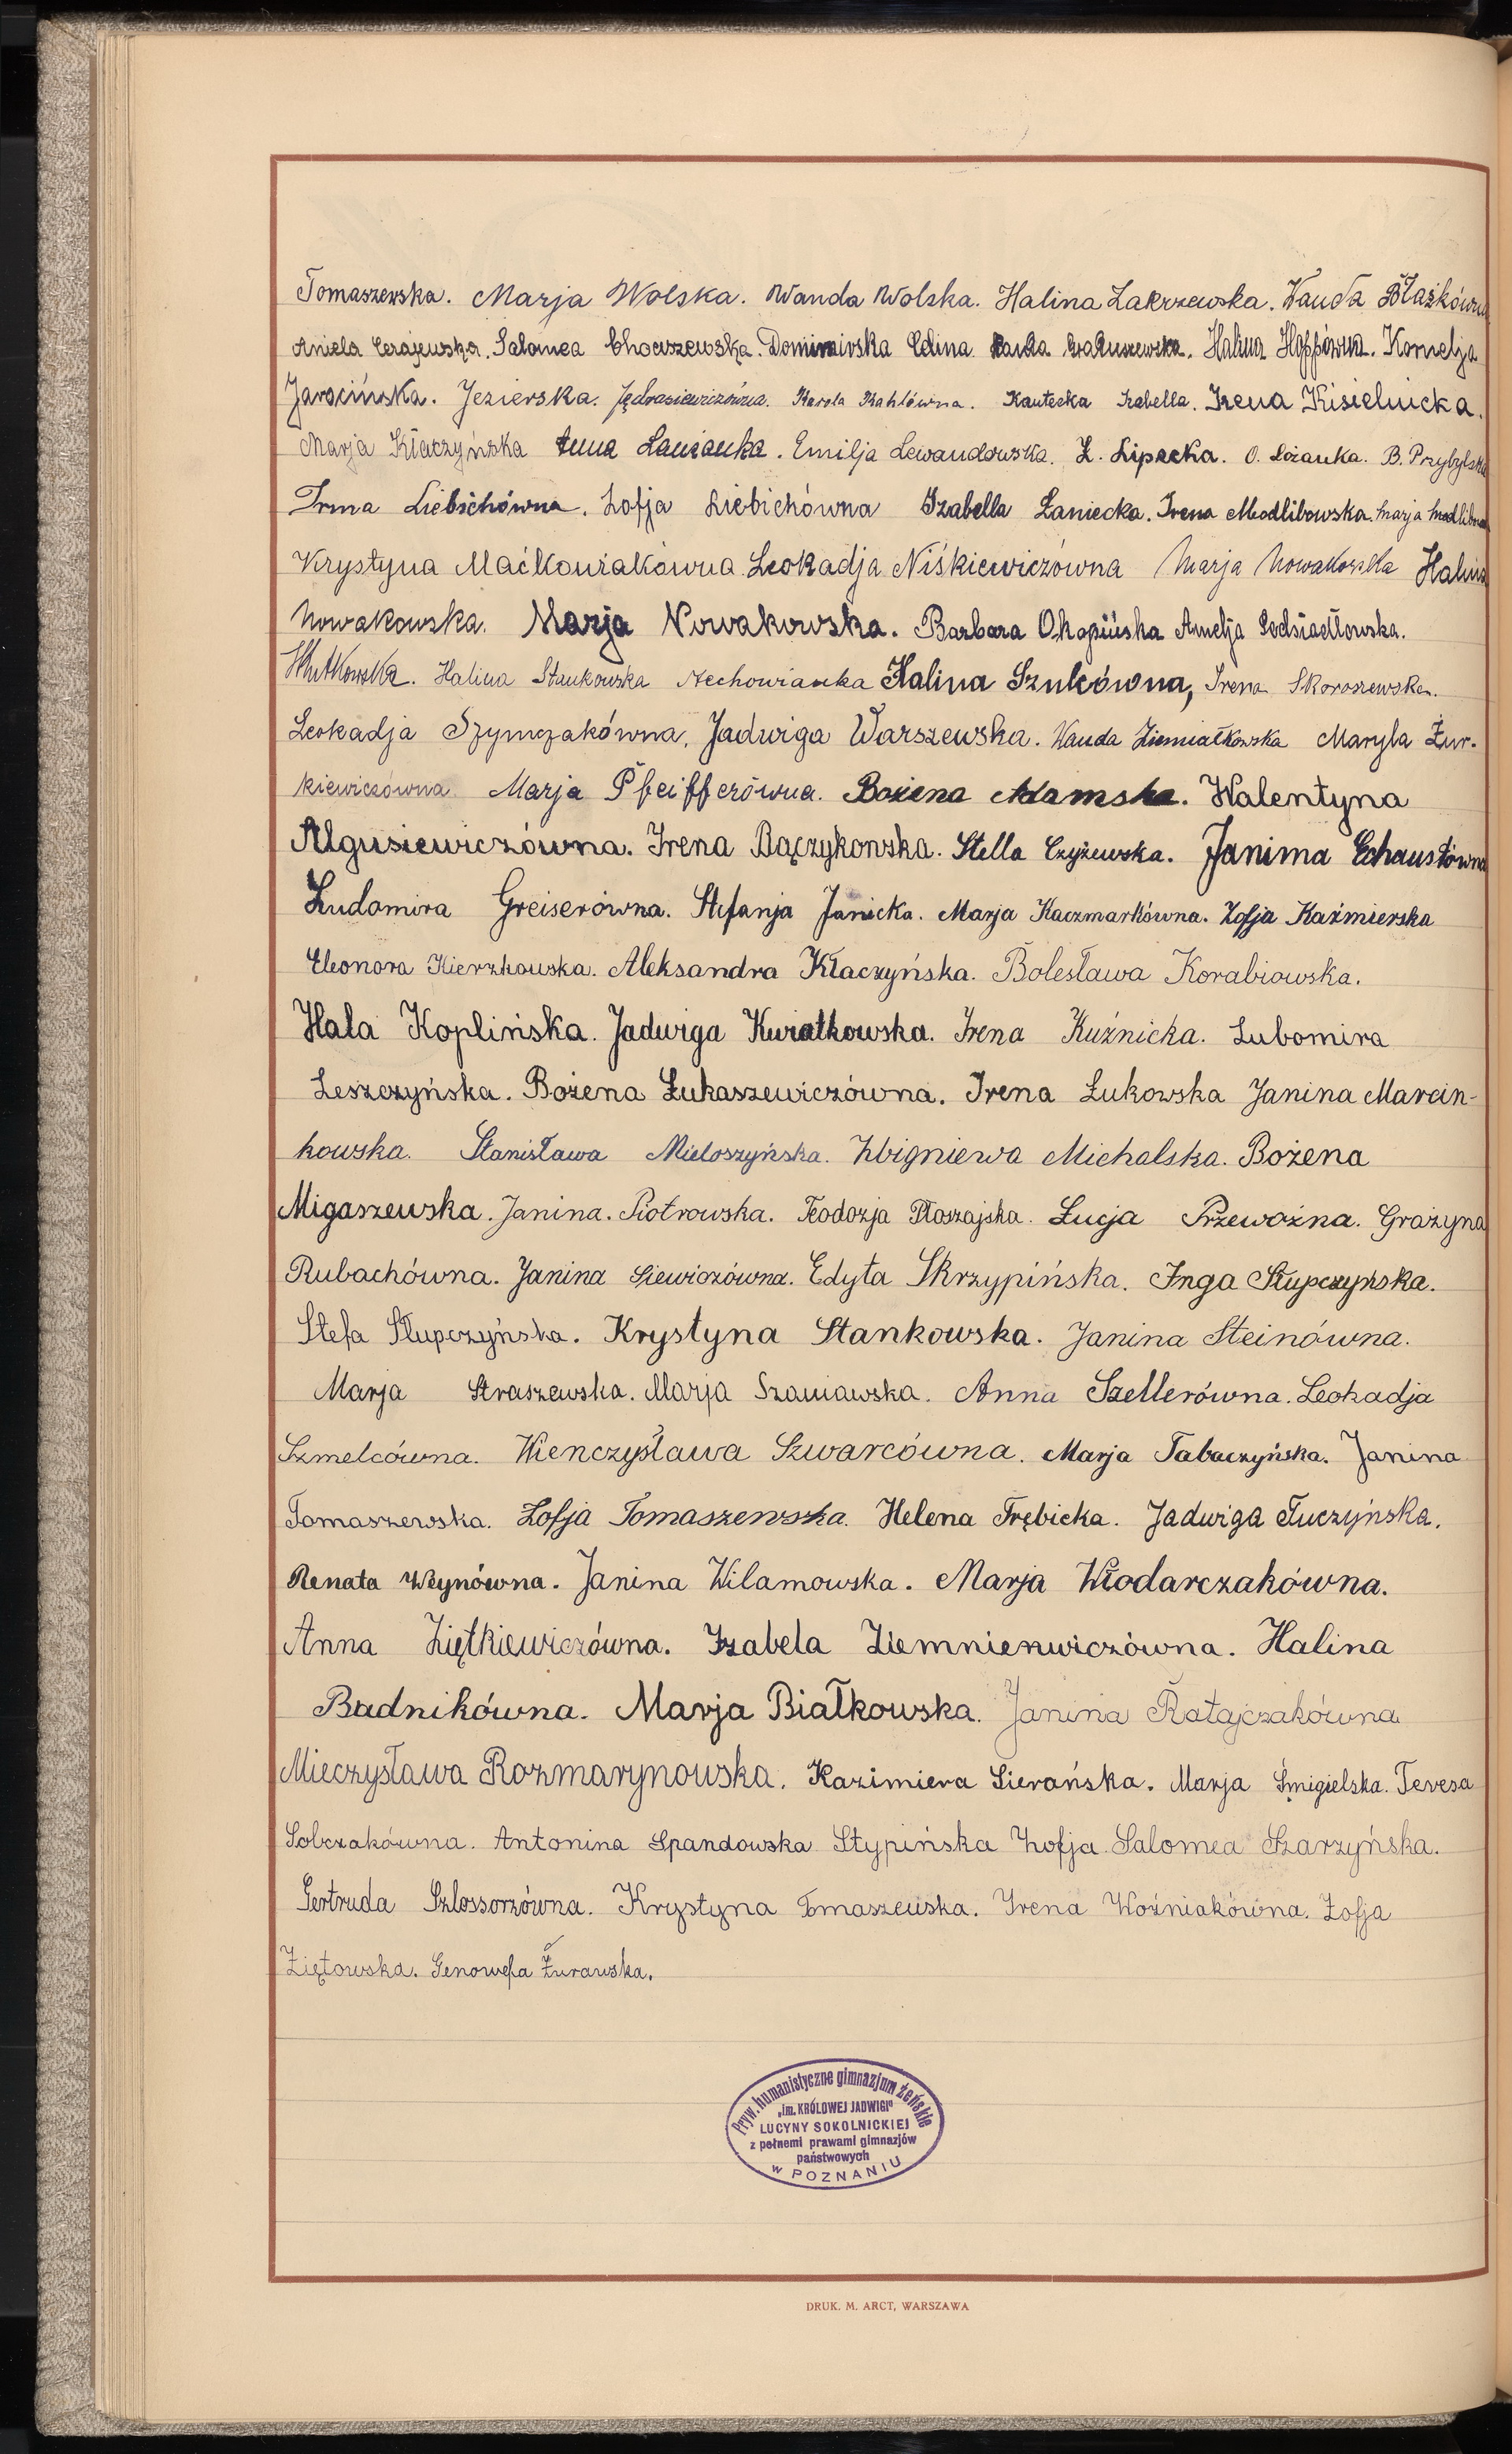 Tomaszewska. Marja Wolska. Wanda Wolska. Halina Zakrzewska. Wanda Błażkówna
Aniela Cerajewska. Salomea Choraszewska. Celina Halina Hoppówna. Kornelja
Jarocińska. Jezierska. Jędrasiewiczówna. Karola Kahlówna. Kantecka Izabella. Irena Kisielnicka.
Marja Kłaczyńska Anna Emilja Lewandowska. Z. Lipecka. O. B. Przybylska
Irma Liebichówna. Zofja Liebichówna Izabella Łaniecka. Irena Modlibowska. Marja
Krystyna Maćkowiakówna Leokadja Niśkiewiczówna Marja Nowakowska Halina
Nowakowska. Marja Nowakowska. Barbara Okopińska Amelja Podsiadłowska.
Halina Stankowska Halina Szulcówna, Irena Skoroszewska.
Leokadja Szymczakówna. Jadwiga Warszewska. Wanda Ziemiałkowska Maryla Żur-
kiewiczówna Marja Pfeifferówna. Bożena Adamska. Walentyna
Algusiewiczówna. Irena Bączykowska. Stella Czyżewska. Janina Echaustówna
Ludomira Greiserówna. Stefanja Janicka. Marja Kaczmarkówna. Zofja Kaźmierska
Eleonora Kierzkowska. Aleksandra Kłaczyńska. Bolesława Korabiowska.
Hala Koplińska. Jadwiga Kwiatkowska. Irena Kuźnicka. Lubomira
Leszczyńska. Bożena Łukaszewiczówna. Irena Łukowska Janina Marcin-
kowska. Stanisława Mieloszyńska. Zbigniewa Michalska. Bożena
Migaszewska. Janina. Piotrowska. Teodozja Płoszajska. Łucja Przewoźna. Grażyna
Rubachówna. Janina Siewiczówna. Edyta Skrzypińska. Inga Słupczyńska.
Stefa Słupczyńska. Krystyna Stankowska. Janina Steinówna.
Marja Straszewska. Marja Szaniawska. Anna Szellerówna. Leokadja
Szmelcówna. Wienczysława Szwarcówna. Marja Tabaczyńska. Janina
Tomaszewska. Zofja Tomaszewska. Helena Trębicka. Jadwiga Tuczyńska.
Renata Weynówna. Janina Wilamowska. Marja Włodarczakówna.
Anna Ziętkiewiczówna. Izabela Ziemniewiczówna. Halina
Badnikówna. Marja Białkowska. Janina Ratajczakówna
Mieczysława Rozmarynowska. Kazimiera Sierańska. Marja Śmigielska. Teresa
Sobczakówna. Antonina Spandowska Stypińska Zofja Salomea Szarzyńska.
Gertruda Szlossorzówna. Krystyna Tomaszewska. Irena Woźniakówna. Zofja
Ziętowska. Genowefa Żurawska.
Pryw. humanistyczne gimnazjum żeńskie
„im. KRÓLOWEJ JADWIGI"
LUCYNY SOKOLNICKIEJ
z pełnemi prawami gimnazjów
państwowych
w POZNANIU
DRUK. M. ARCT, WARSZAWA